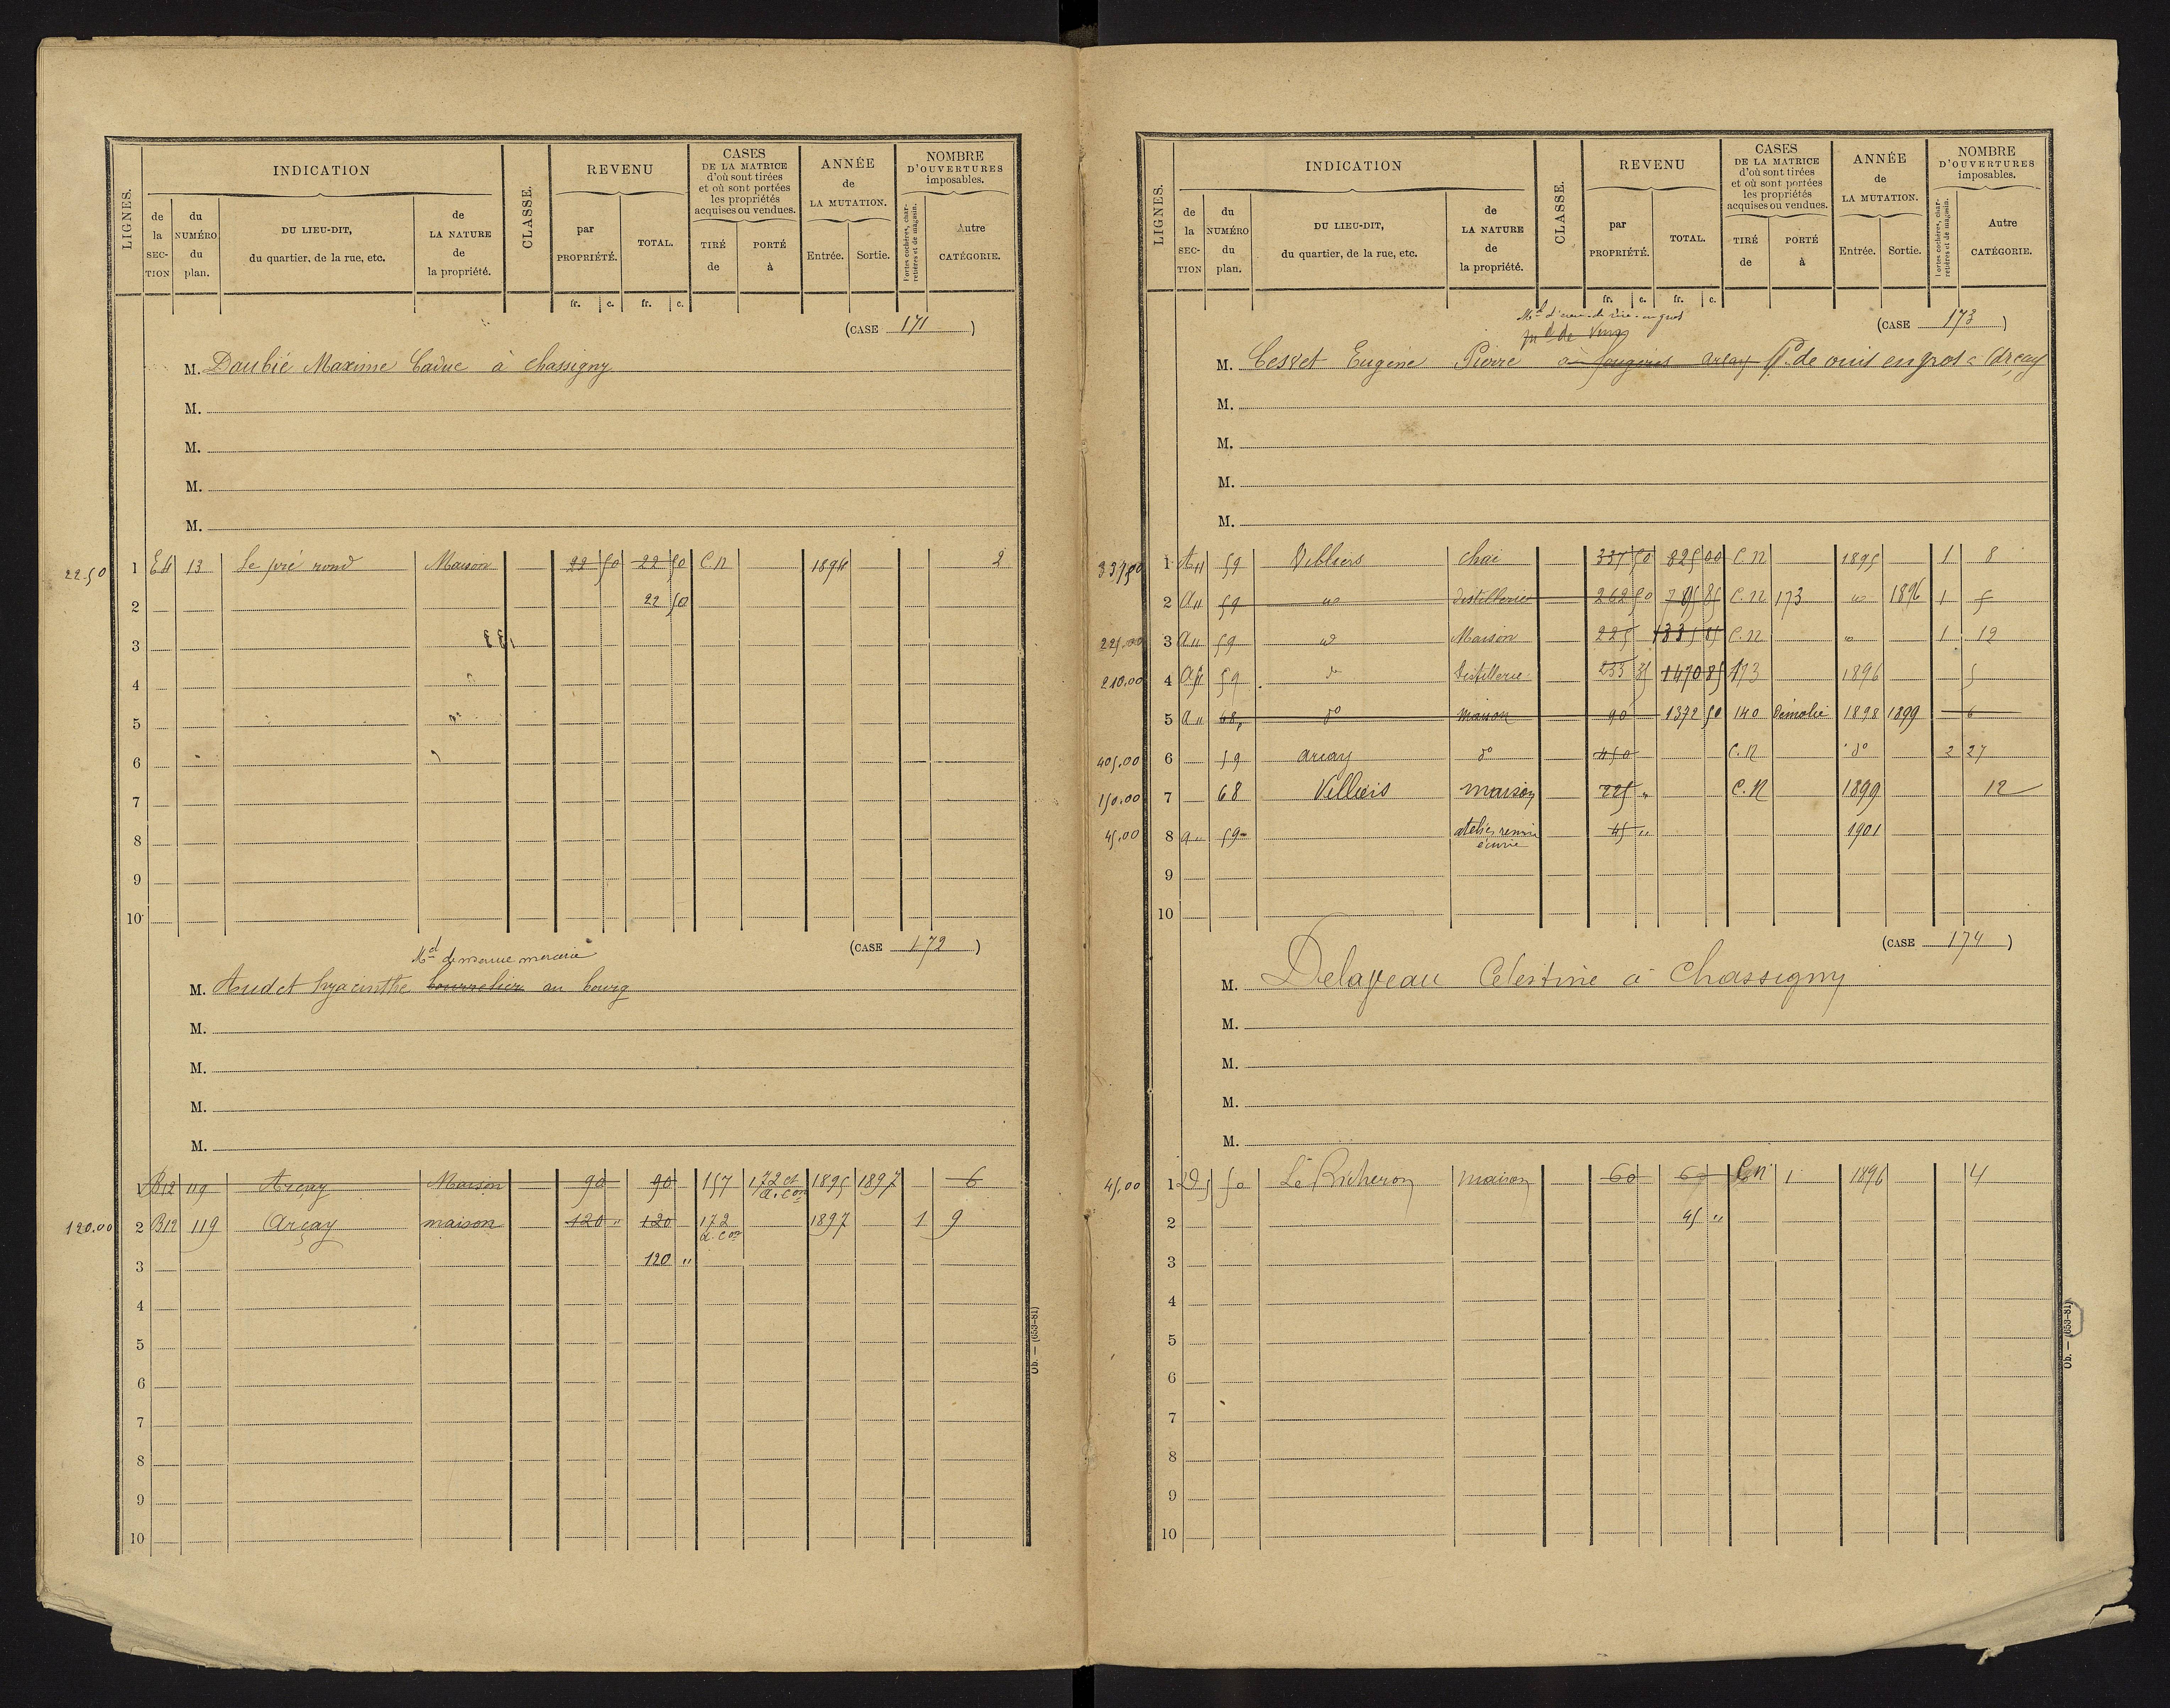 LIGNES. INDICATION CLASSE. REVENU CASES DE LA MATRICE d'où sont tirées et où sont portées les propriétés acquises ou vendues. ANNÉE de LA MUTATION. NOMBRE D'OUVERTURES imposables.
de la SECTION du NUMÉRO du plan. DU LIEU-DIT, du quartier, de la rue, etc. de LA NATURE de la propriété. par PROPRIÉTÉ. TOTAL. TIRÉ de PORTÉ à Entrée. Sortie. Portes cochères, charretières et de magasin. Autre CATÉGORIE.
fr. c. fr. c.
(CASE 171)
M. Daubié Maxime Cadue à chassigny
M.
M.
M.
M.
22.50 1 E4 13 Le pré rond Maison 22 50 22 50 C.N 1894 2
2 22 50
3
4
5
6
7
8
9
10
(CASE 172)
Md mercerie
M. Audet hyacinthe bourrelier au bourg
M.
M.
M.
M.
1 B12 119 Arçay Maison 90 90 157 172 et a. con 1895 1897 6
120.00 2 B12 119 Arçay maison 120 " 120 172 a. con 1897 1 9
3 120 "
4
5
6
7
8
9
10
Ob. — (653-81)
LIGNES. INDICATION CLASSE. REVENU CASES DE LA MATRICE d'où sont tirées et où sont portées les propriétés acquises ou vendues. ANNÉE de LA MUTATION. NOMBRE D'OUVERTURES imposables.
de la SECTION du NUMÉRO du plan. DU LIEU-DIT, du quartier, de la rue, etc. de LA NATURE de la propriété. par PROPRIÉTÉ. TOTAL. TIRÉ de PORTÉ à Entrée. Sortie. Portes cochères, charretières et de magasin. Autre CATÉGORIE.
fr. c. fr. c.
(CASE 173)
en gros
Md de vins
M. Cesvet Eugène Pierre à fougères arcay de vins en gros à Arçay
M.
M.
M.
M.
337,50 1 A11 59 Villiers chai 337 50 825 00 C.N 1895 1 8
2 A11 59 do distillerie 262 50 785 85 C.N 173 do 1896 1 5
225.00 3 A11 59 do Maison 225 1335 85 C.N do 1 12
210.00 4 A11 59 do Distillerie 233 35 1470 85 173 1896 5
5 A11 68 do maison 90 1372 50 140 Démolie 1898 1899 6
405.00 6 59 arcay do 450 C.N do 2 27
150.00 7 68 Villiers maison 225 " C.N 1899 12
45,00 8 59 atelier remise écurie 45 " 1901
9
10
(CASE 174)
M. Delaveau Célestine à Chassigny
M.
M.
M.
M.
45,00 1 D5 50 Le Richeron maison 60 60 C.N 1 1896 4
2 45 "
3
4
5
6
7
8
9
10
Ob. — (653-81)